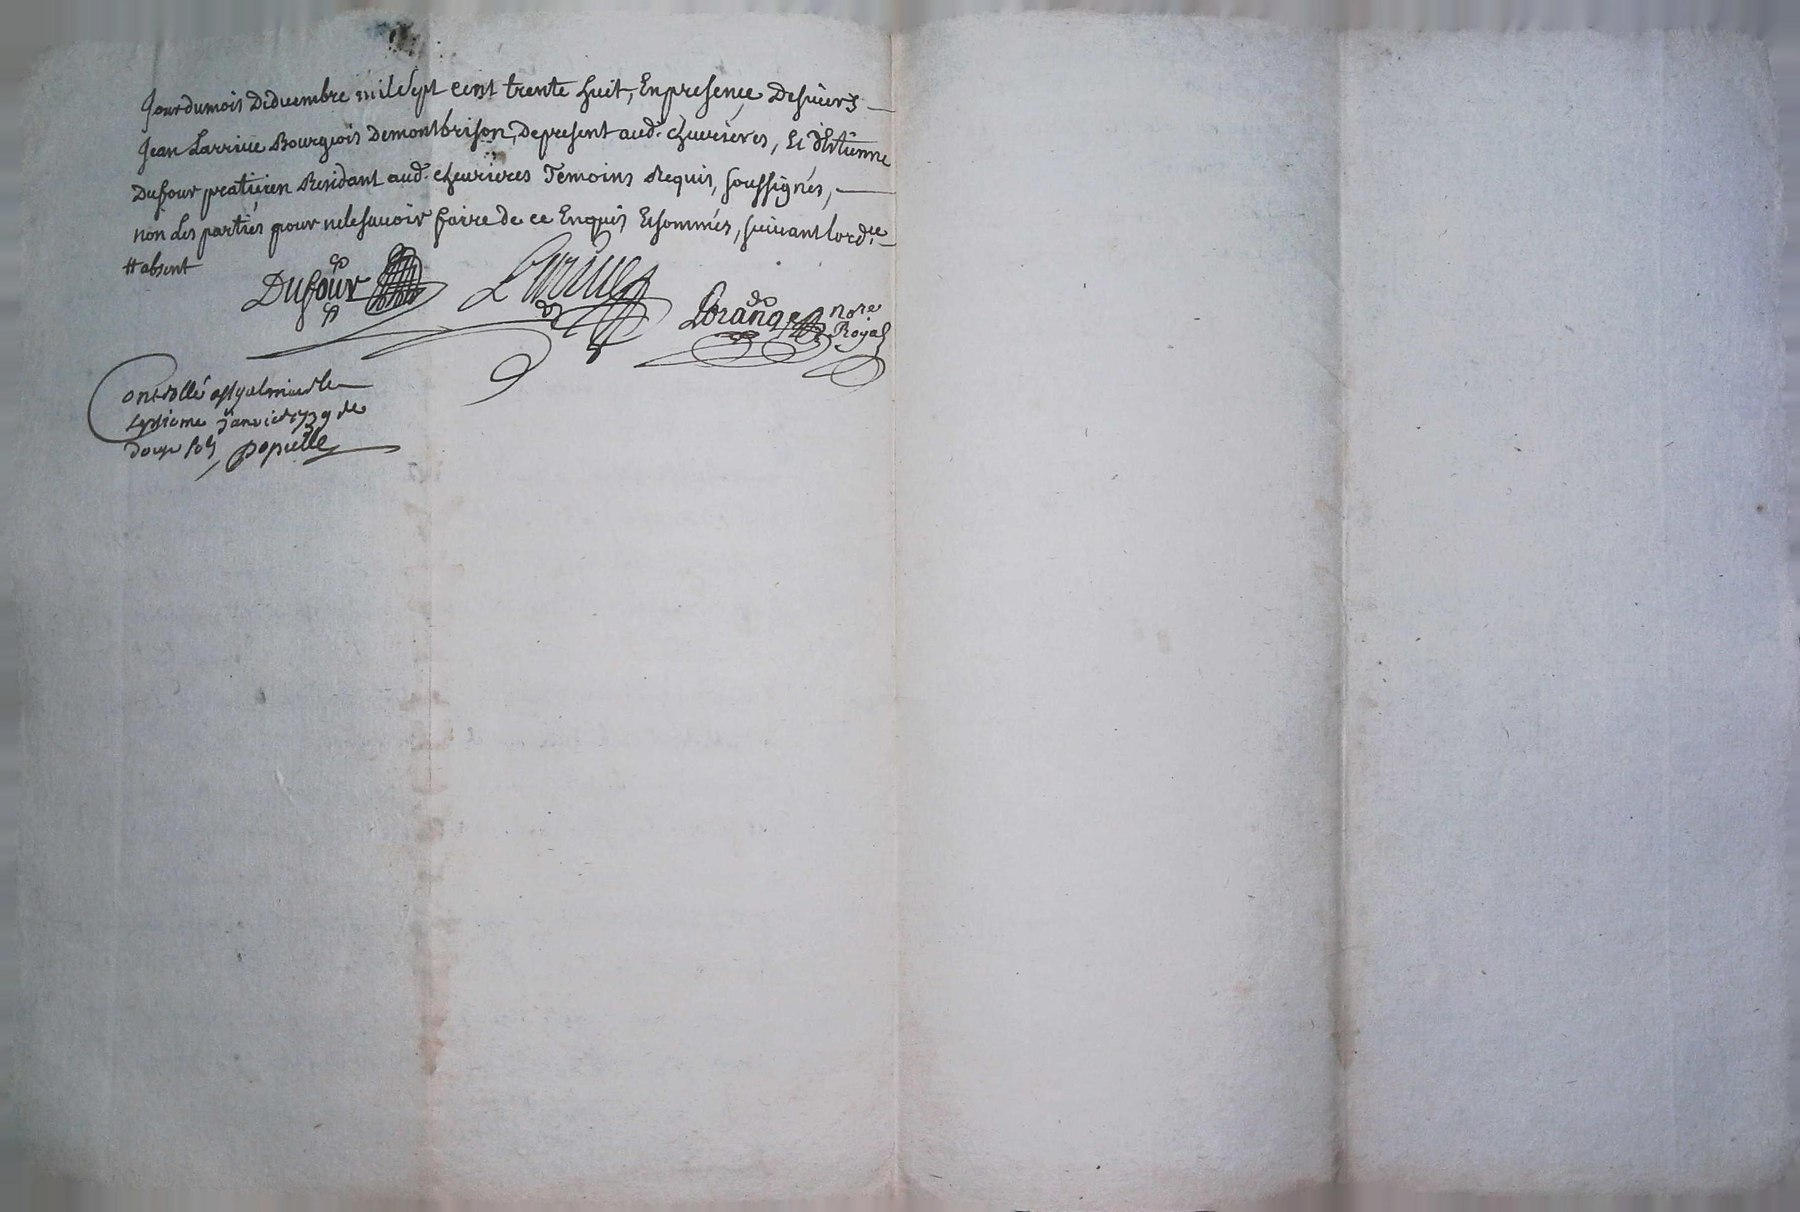 Jour du mois De Decembre mil Sept cent trente huit, En presence De sieurs
Jean Larriue Bourgeois De montbrison, De present aud.t cheurieres, Et d'Estienne
Dufour praticien Residant aud.t cheurieres Temoins Requis, soussignés,
non les partiés pour ne le sauoir faire de ce Enquis Et sommés, suiuant lord.ce
# absent
Dufour Larriue Lorange no.re
Royal
Controllé a st galmier le
septieme janvier 1739 de
Douze sols